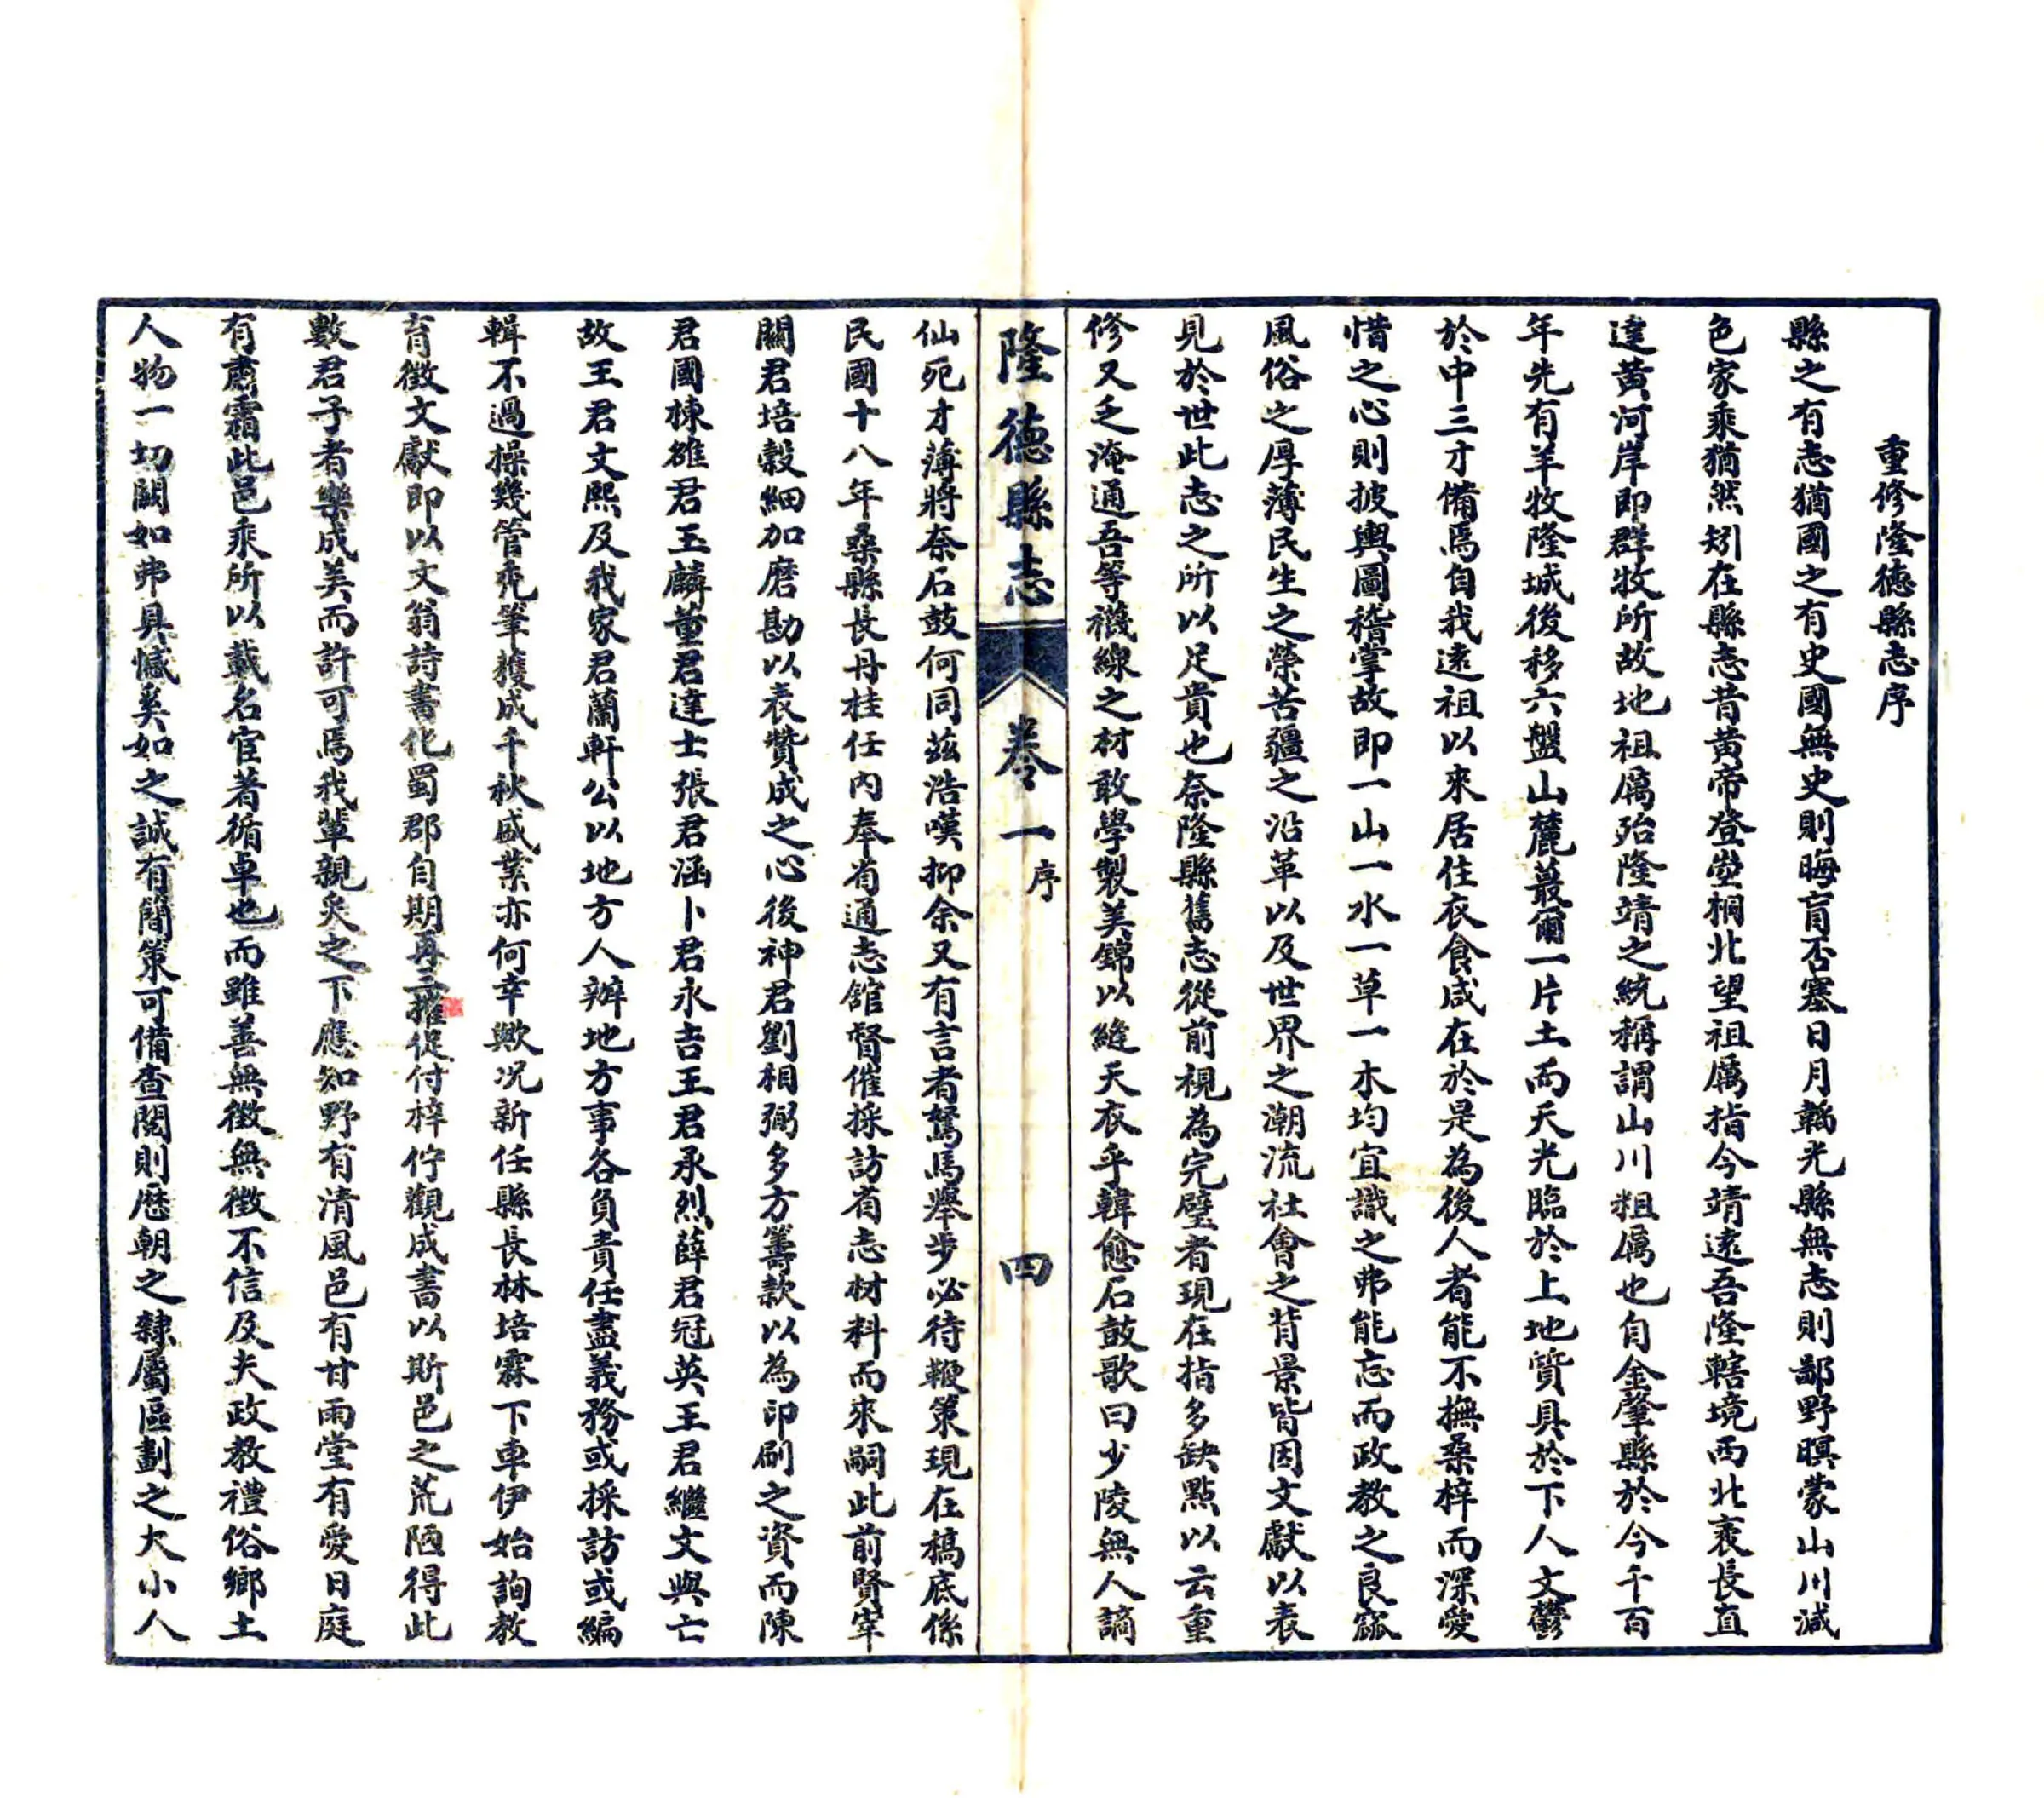 重修隆德縣志序
縣之有志猶國之有史國無史則晦盲否塞日月韜光縣無志則鄙野暝蒙山川減
色家乘猶然矧在縣志昔黃帝登崆峒北望祖厲指今靖遠吾隆轄境西北袤長直
達黃河岸即群牧所故地祖厲殆隆靖之統稱謂山川粗厲也自金肇縣於今千百
年先有羊牧隆城後移六盤山麓蕞爾一片土而天光臨於上地質具於下人文鬱
於中三才備焉自我遠祖以來居住衣食咸在於是為後人者能不撫桑梓而深愛
惜之心則披輿圖稽掌故即一山一水一草一木均宜識之弗能忘而政教之良窳
風俗之厚薄民生之榮苦疆之沿革以及世界之潮流社會之背景皆因文獻以表
見於世此志之所以足貴也奈隆縣舊志從前視為完璧者現在指多缺點以云重
修又乏淹通吾等襪線之材敢學製美錦以縫天衣乎韓愈石鼓歌曰少陵無人謫
隆德縣志
卷一
序
四
仙死才薄將奈石鼓何同茲浩嘆抑余又有言者駑馬舉步必待鞭策現在稿底係
民國十八年桑縣長丹桂任內奉省通志館督催採訪省志材料而來嗣此前賢宰
關君培穀細加磨勘以表贊成之心後神君劉相弼多方籌款以為印刷之資而陳
君國棟雒君玉麟董君達士張君涵卜君永吉王君承烈薛君冠英王君繼文與亡
故王君文熙及我家君蘭軒公以地方人辦地方事各負責任盡義務或採訪或編
輯不過操幾管禿筆獲成千秋盛業亦何幸歟况新任縣長林培霖下車伊始詢教
育徵文獻即以文翁詩書化蜀郡自期再三摧促付梓佇觀成書以斯邑之荒陋得此
數君子者樂成美而許可焉我輩親炙之下應知野有清風邑有甘雨堂有愛日庭
有肅霜此邑乘所以載名宦著循卓也而雖善無徵無徵不信及夫政教禮俗鄉土
人物一切闕如弗具憾奚如之誠有簡策可備查閱則歷朝之隸屬區劃之大小人